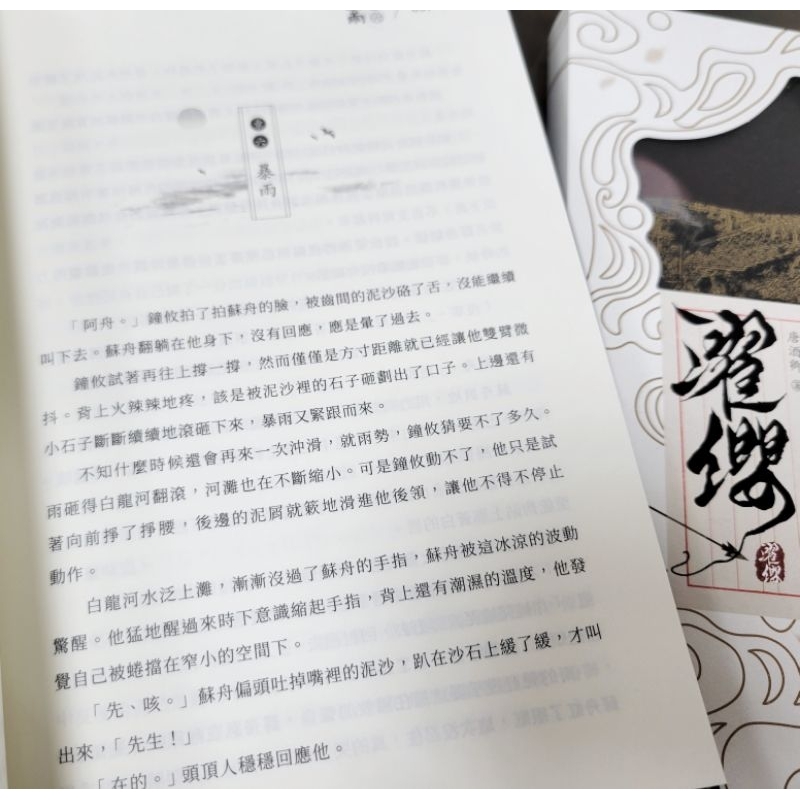 暴雨
「阿舟。」鐘攸拍了拍蘇舟的臉，被齒間的泥沙硌了舌，沒能繼續
叫下去。蘇舟翻躺在他身下，沒有回應，應是暈了過去。
鐘攸試著再往上撐一撐，然而僅僅是方寸距離就已經讓他雙臂微
抖。背上火辣辣地疼，該是被泥沙裡的石子砸劃出了口子。上邊還有
小石子斷斷續續地滾砸下來，暴雨又緊跟而來。
不知什麼時候還會再來一次沖滑，就雨勢，鐘攸猜要不了多久。
雨砸得白龍河翻滾，河灘也在不斷縮小。可是鐘攸動不了，他只是試
著向前掙了掙腰，後邊的泥屑就簌地滑進他後領，讓他不得不停止
動作。
白龍河水泛上灘，漸漸沒過了蘇舟的手指，蘇舟被這冰涼的波動
驚醒。他猛地醒過來時下意識縮起手指，背上還有潮濕的溫度，他發
覺自己被蜷擋在窄小的空間下。
「先、咳。」蘇舟偏頭吐掉嘴裡的泥沙，趴在沙石上緩了緩，才叫
出來，「先生！」
「在的。」頭頂人穩穩回應他。
濯纓
唐酒卿 著
濯纓